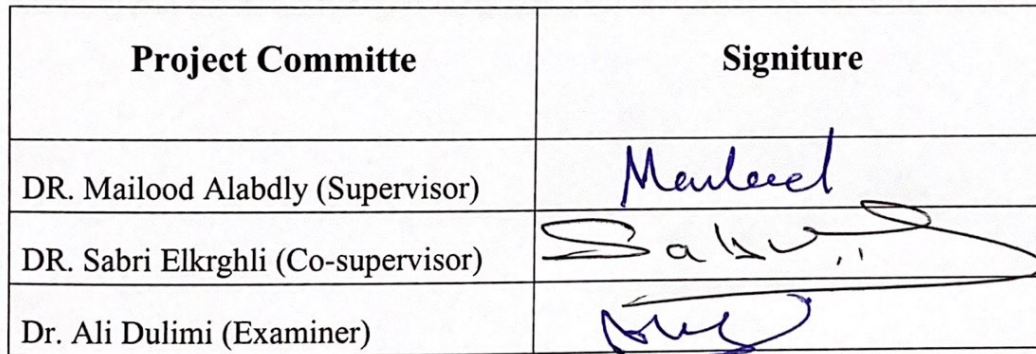 Project Committe Signiture
DR. Mailood Alabdly (Supervisor)
DR. Sabri Elkrghli (Co-supervisor) Sabri
Dr. Ali Dulimi (Examiner)